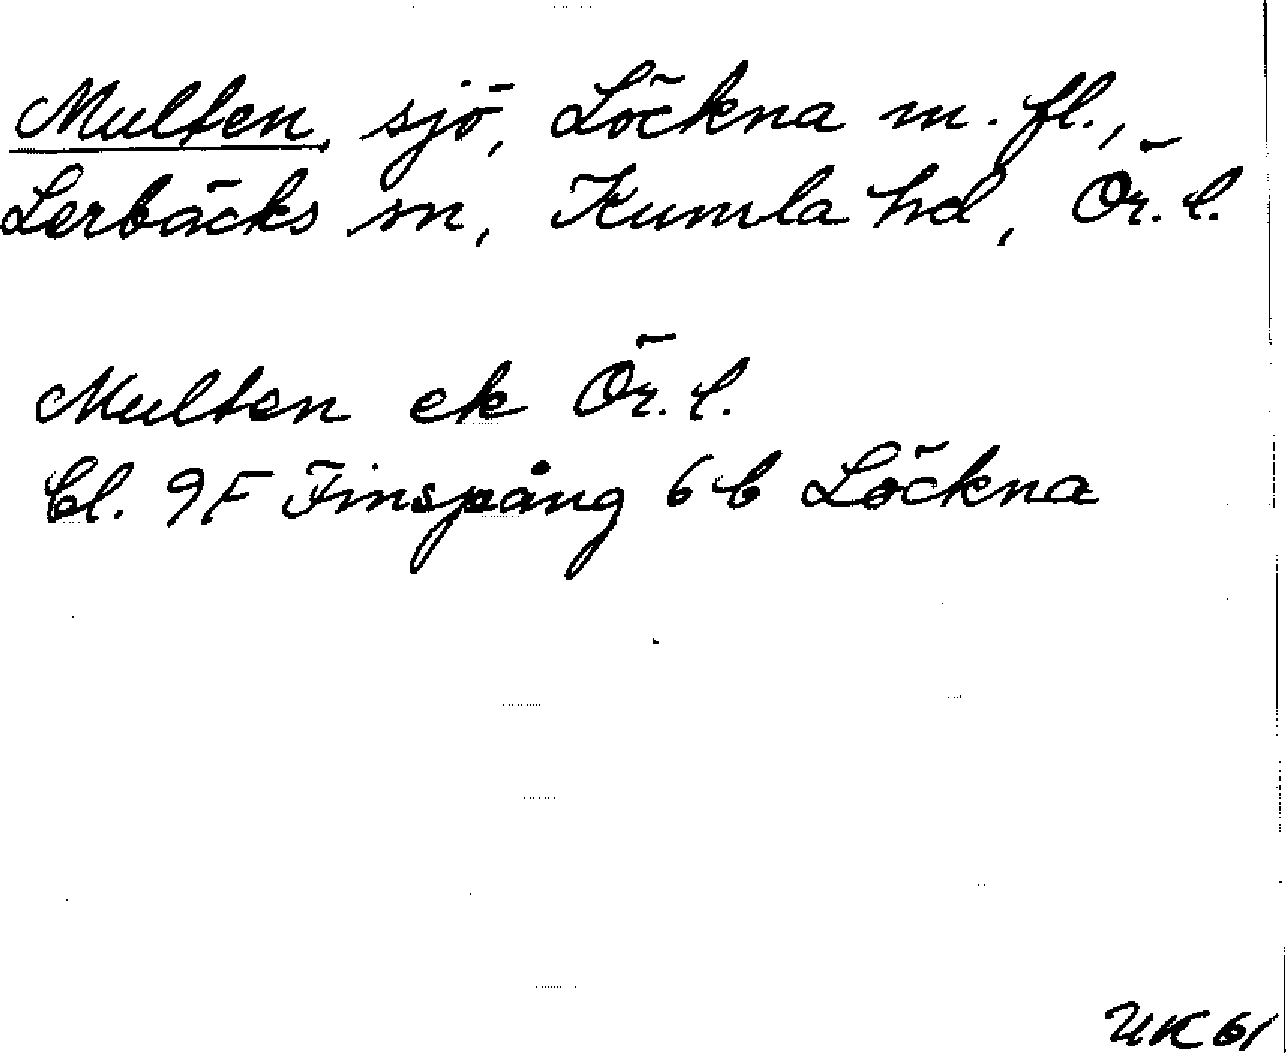 Multen, sjö, Löckna m. fl.,
Lerbäcks sn, Kumla hd, Ör. l.
Multen ek Ör. l.
bl. 9F Finspång 6b Löckna
UK 61